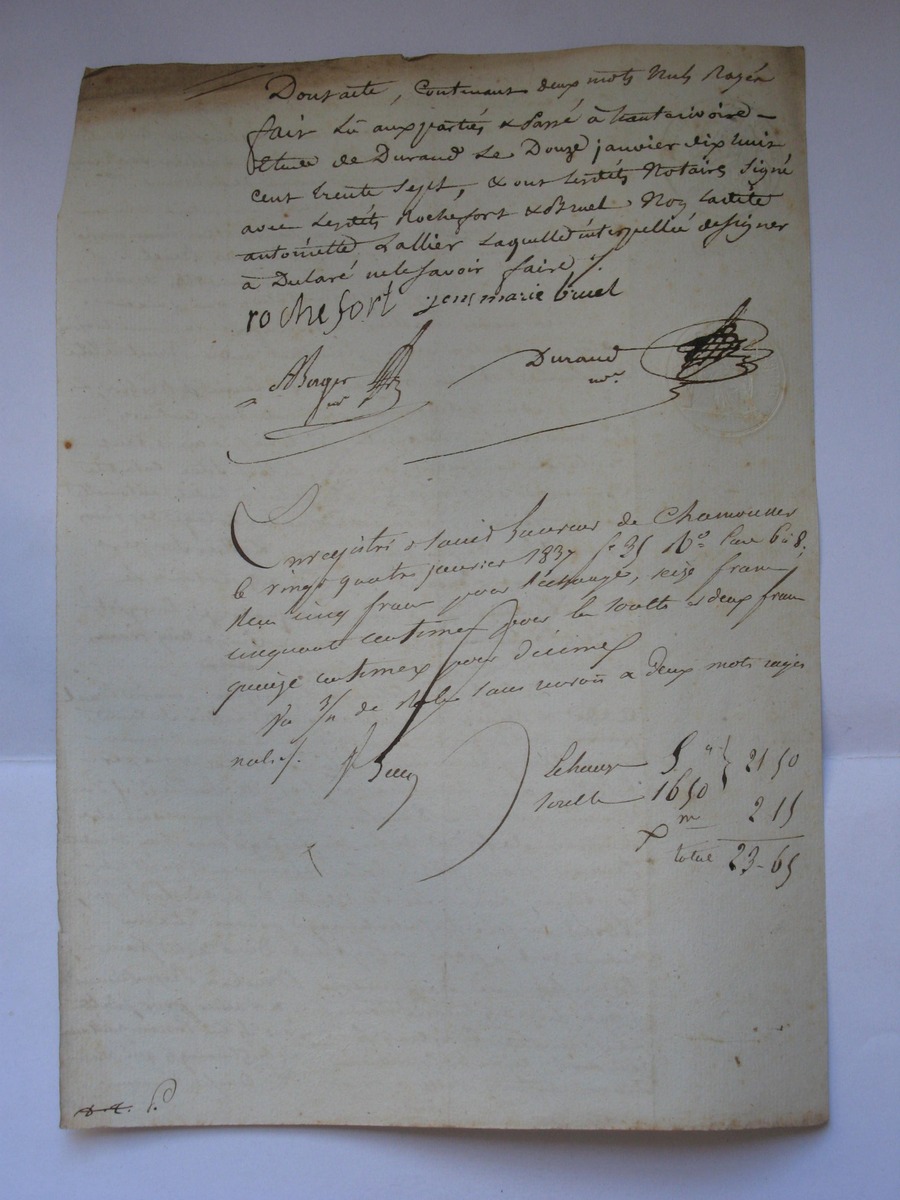 Dont acte, Contenant deux mots Nuls Rayés
fait Lu aux parties & Passé à hauterivoire
Etude de Durand Le Douze janvier dix huit
cent trente Sept, & ont Lesdits Notaires Signé
avec Lesdits Rochefort & Bruel, Non Ladite
antoinette Lallier Laquelle interpellée de signer
à Déclaré ne le savoir faire
rochefort jean marie bruel
Berger
nre
Durand
nre
Enregistré à Saint Laurent de Chamousset
le vingt quatre janvier 1837 fo 31 Ro Case 6 à 8
Reçu cinq francs pour l'échange, seize francs
cinquante centimes pour la soulte & deux francs
quinze centimes pour décimes
de Rôle sans renvoi à deux mots rayés
nuls.
Echange 5 " } 21 50
soulte 16 50
Xme 2 15
total 23-65